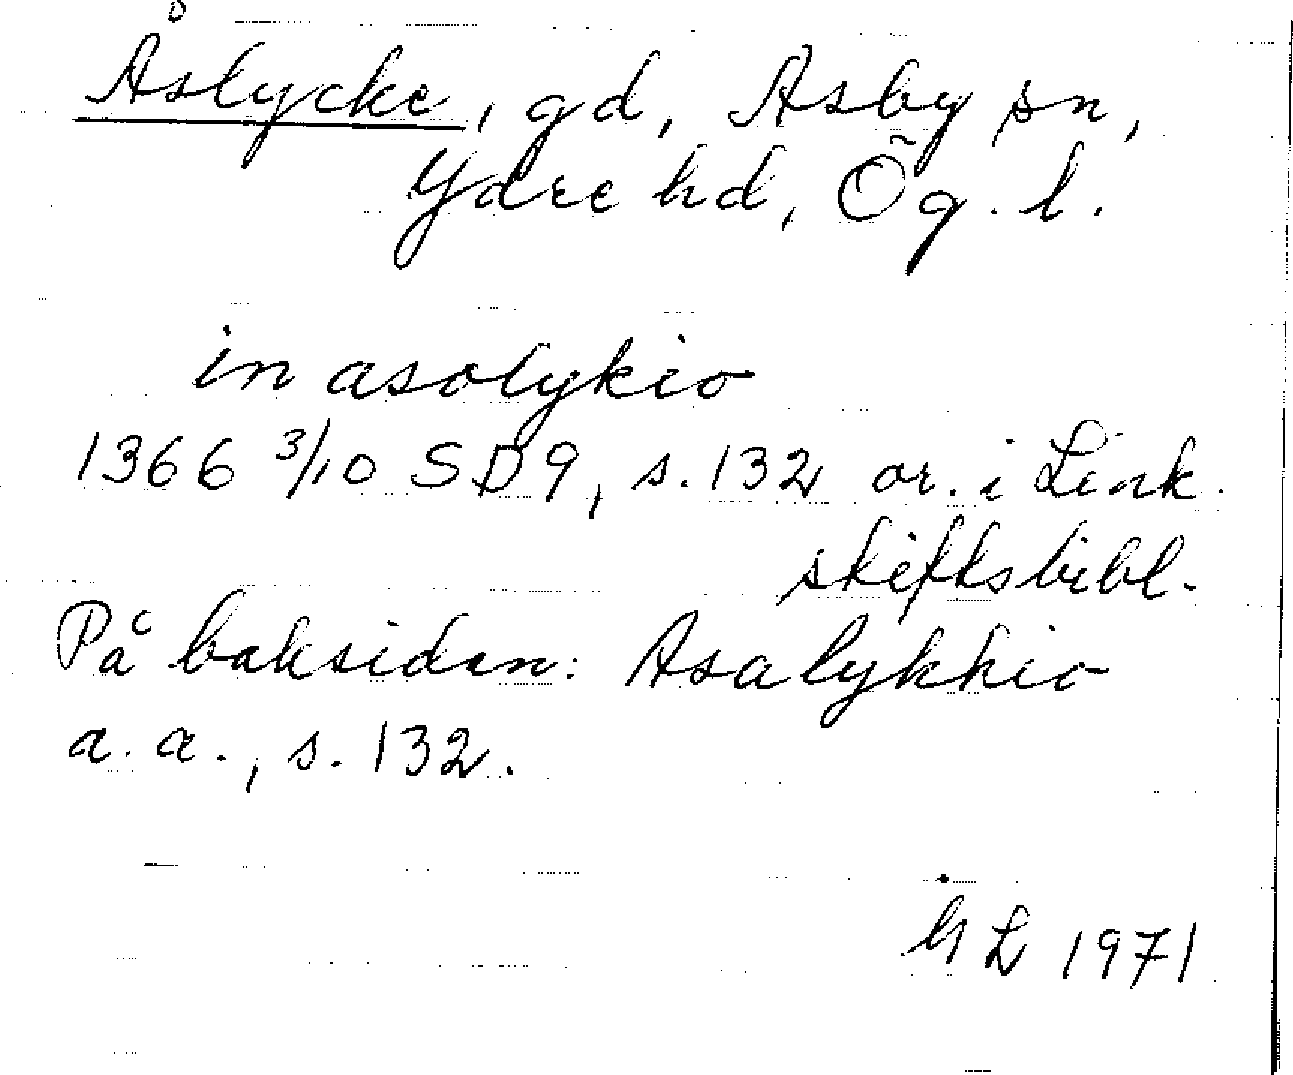 Åslycke, gd, Asby sn,
Ydre hd, Ög. l.
in asolykio
1366 3/10 SD9, s. 132 or. i Link.
stiftsbibl.
På baksidan: Asalykkio
a. a., s. 132.
GL 1971